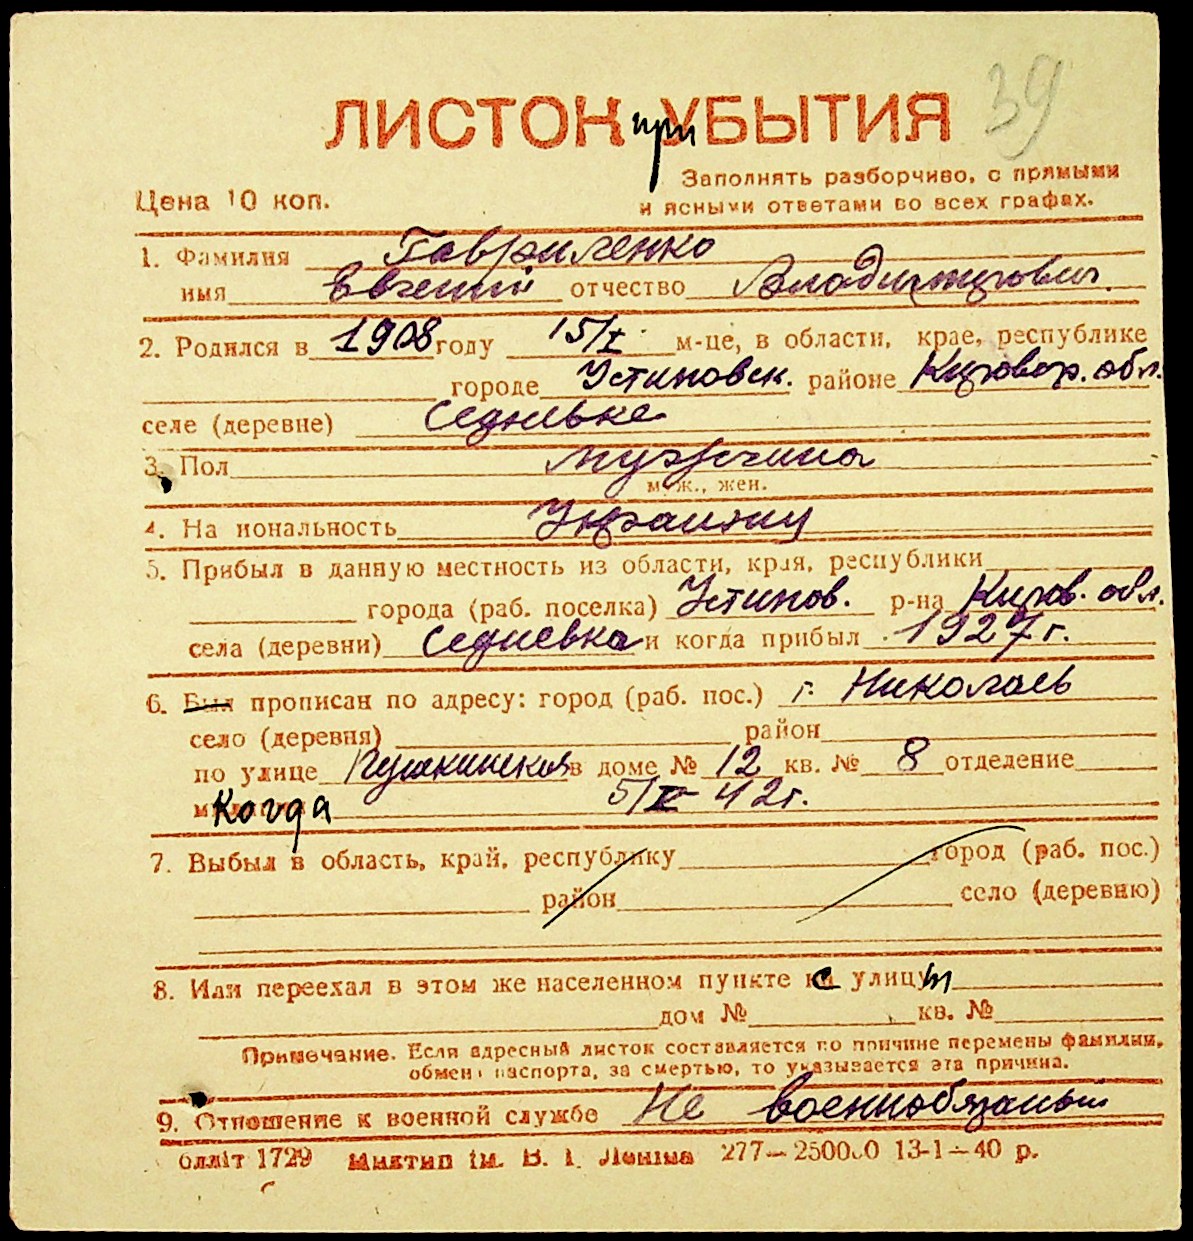 39
ЛИСТОК при УБЫТИЯ
Заполнять разборчиво, с прямыми
Цена 10 коп.
и ясными ответами во всех графах.
1. Фамилия Гавриленко
имя Евгений отчество Владимирович.
2. Родился в 1908 году 15/I м-це, в области, крае, республике
городе Устиновск. районе Кировогр. обл.
селе (деревне) Седнивке
3. Пол мужчина
муж., жен.
4. Национальность Украинец
5. Прибыл в данную местность из области, края, республики
города (раб. поселка) Устинов. р-на Киров. обл.
села (деревни) Седневка и когда прибыл 1927 г.
6. Был прописан по адресу: город (раб. пос.) г. Николаев
село (деревня) район
по улице Пушкинской в доме № 12 кв. № 8 отделение
Когда 5/II 42 г.
7. Выбыл в область, край, республику город (раб. пос.)
район село (деревню)
8. Или переехал в этом же населенном пункте с улицы
дом № кв. №
Примечание. Если адресный листок составляется по причине перемены фамилии,
обмена паспорта, за смертью, то указывается эта причина.
9. Отношение к военной службе Не военнобязаный
облліт 1729 Миктип ім. В. І. Леніна 277—250000 13-1—40 р.